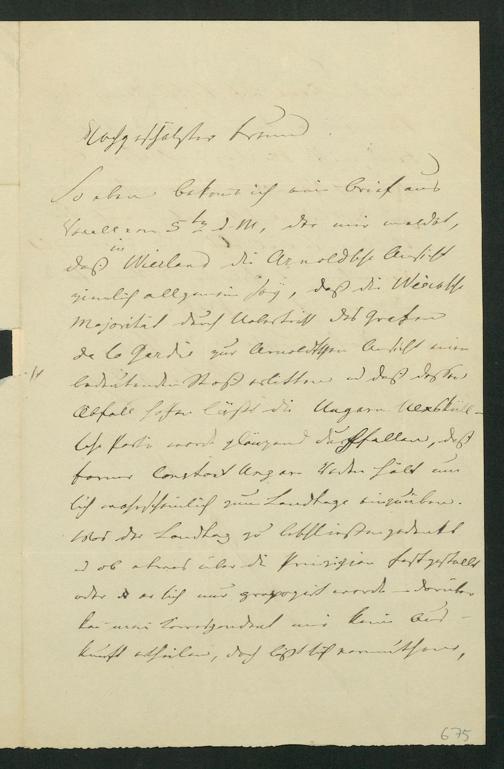 Hochgeschätzter Freund
So eben bekomme ich ein Brief aus
vom 5ten d. M., der mir meldet,
daß in Wierland die Arnoldtsche Ansicht
ziemlich allgemein sey, daß die Wiecksche
Majorität durch Uebertritt des Grafen
de la Gardie zur Arnoldtschen Ansicht einen
bedeutenden Stoß erlitten u daß dessen
Abfall hoffen läßt die Ungern Uexküll-
sche Partie werde glänzend durchfallen, daß
ferner Constant Ungern
lich wahrscheinlich zum Landtage
Was der Landtag zu beschließen gedenkt
u ob etwas über die Prinzipien festgestellt
oder ob es sich nur werde – darüber
kann mein Correspondent mir keine Aus-
kunft ertheilen, doch läßt sich vermuthen,
675